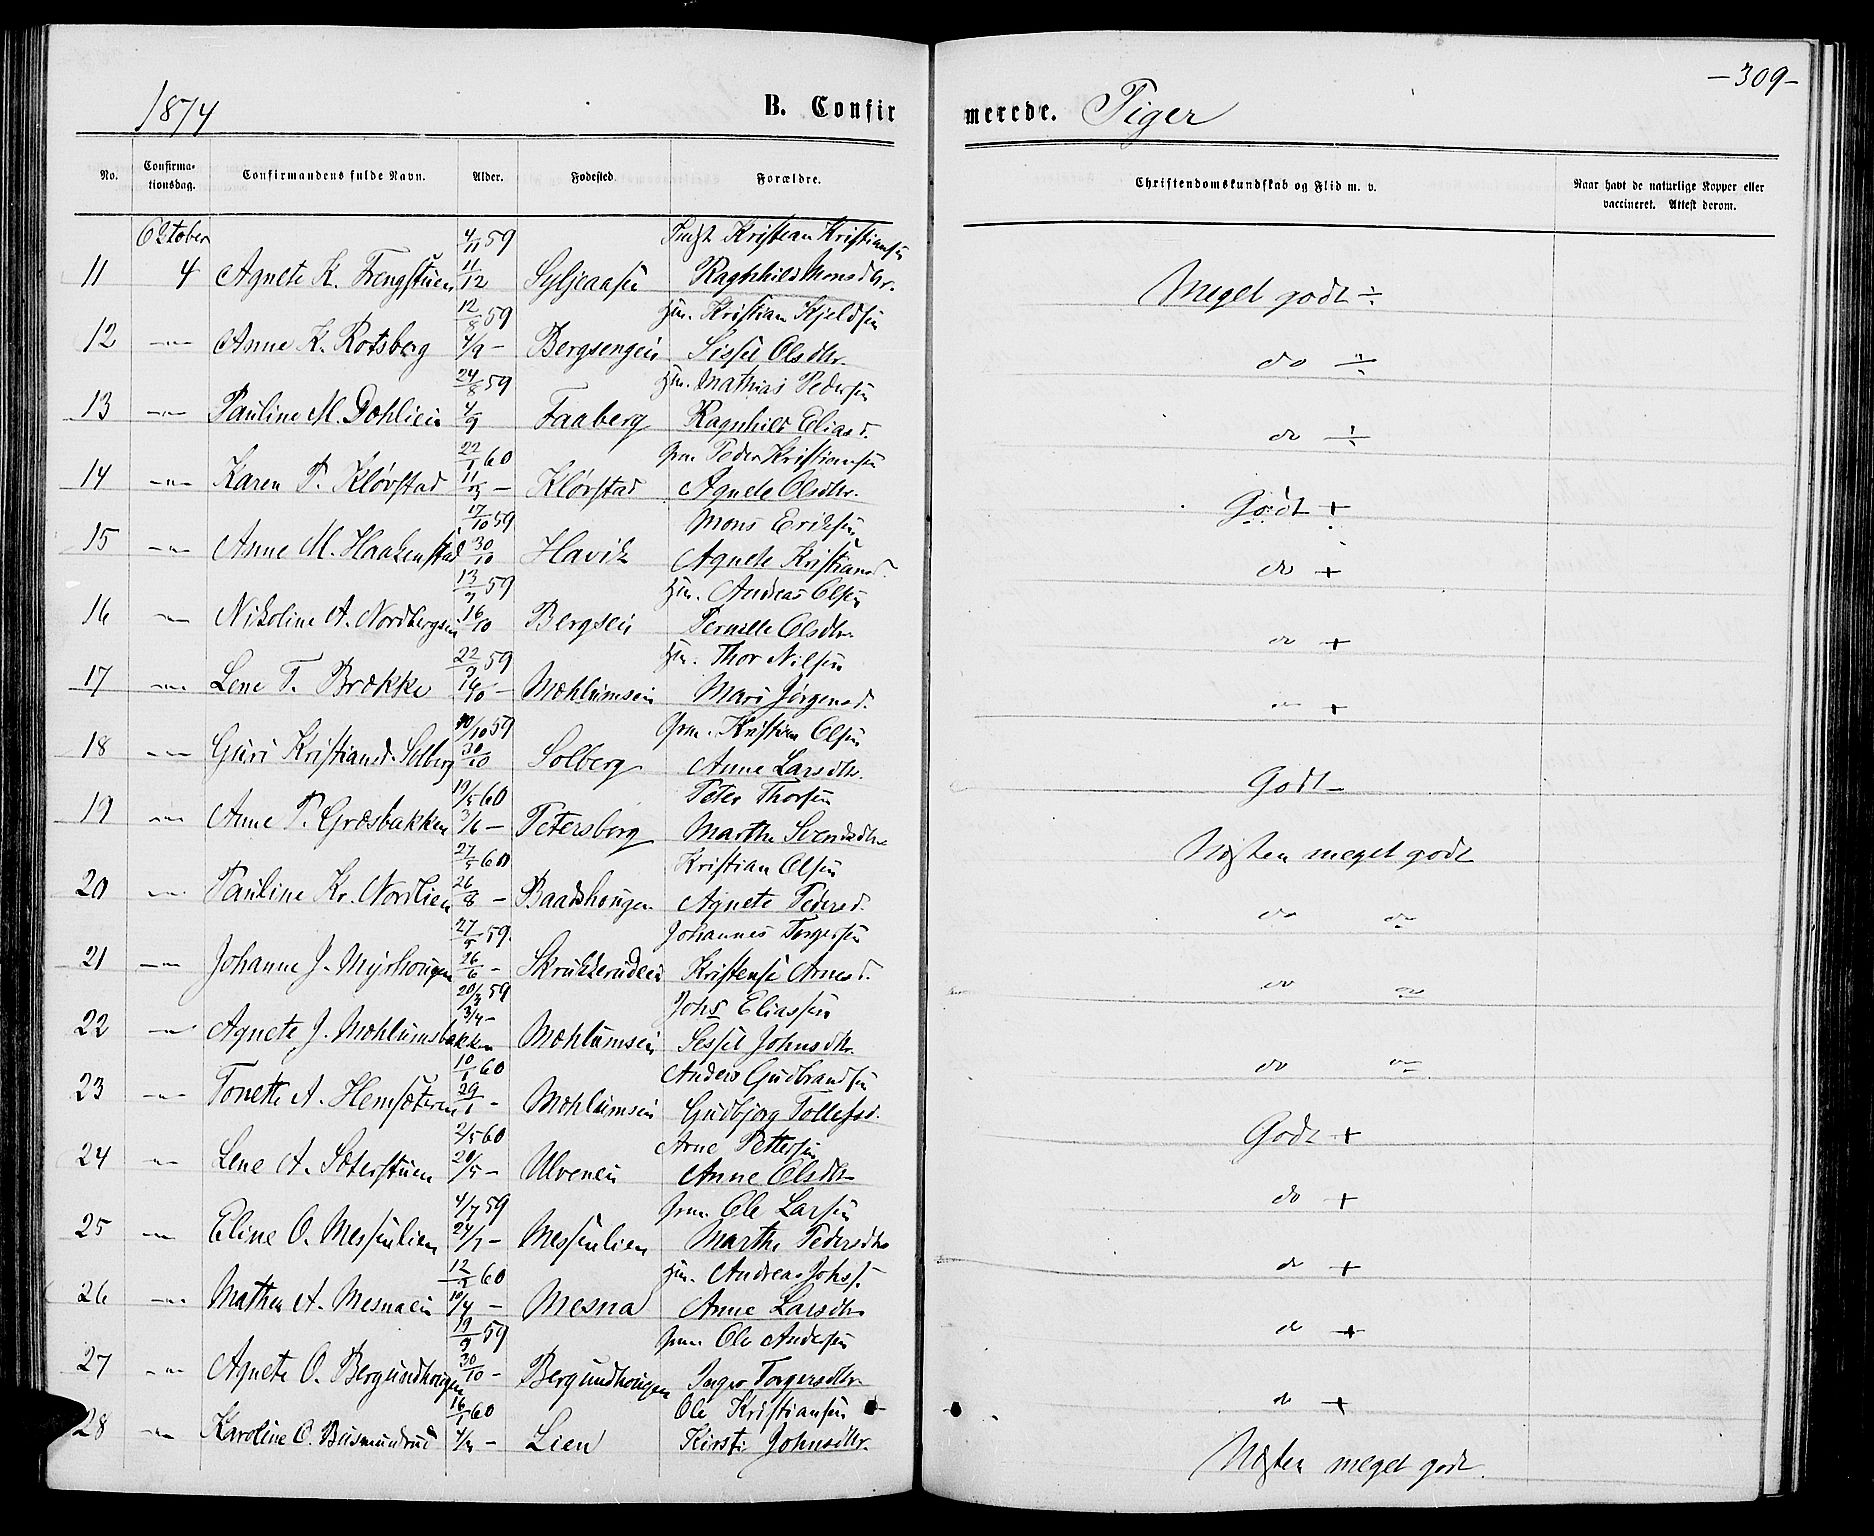 1874 B. Confirmerede. Piger -309-
No. Confirmationsdag. Confirmandens fulde Navn. Alder. Fødested. Forældre. Christendomskundskab og Flid m. v. Naar havt de naturlige Kopper eller vaccineret. Attest derom.
Oktober 4/11 59 Kristian Kristiansen
11 4 Agnete K. Engstuen 11/12 Syljeaasen Ragnhild Monsdtr. Meget godt ÷
12/8 59 Hm. Kristian Kjeldsen
12 -"- Anne K. Rotsberg 4/9 - Bergsengen Sissel Olsdtr. do ÷
24/8 59 Hm. Mathias Pedersen
13 -"- Pauline M. Dohlien 4/9 Faaberg Ragnhild Eliasd. do ÷
22/1 60 Grm Peder Kristiansen
14 -"- Karen P. Klövstad 11/3 - Klövstad Agnete Olsdtr. Godt +
17/10 59 Mons Eriksen
15 -"- Anne M. Haakenstad 30/10 Havik Agnete Kristiansd. do +
13/9 59 Hm. Andreas Olsen
16 -"- Nikoline A. Nordbergsen 16/10 Bergsen Pernille Olsdtr. do +
22/9 59 Hm. Thor Nilsen
17 -"- Lene T. Brække 16/10 - Mohlumsen Mari Jörgensd. -"- +
10/10 59 Grm. Kristian Olsen
18 -"- Guri Kristiansd. Solberg 30/10 Solberg Anne Larsdtr. Godt -
19/5 60 Peter Thorsen
19 -"- Anne P. Græsbakken 3/6 - Petersborg Marthe Svendsdtr Næsten meget godt
27/5 60 Kristian Olsen
20 -"- Pauline Kr. Nordlien 26/8 - Baadshougen Agnete Pedersd. do do
27/5 59. Johannes Torgersen
21 -"- Johanne J. Myrhougen 26/6 - Skrukkerudeie Kristense Arnesd. do do
20/3 59 Johs Eliassen
22 -"- Agnete J. Mohlumsbakken 3/4 - Mohlumsen Sessel Johnsdtr. do do
10/1 60 Anders Gudbrandsen
23 -"- Tonette A. Hemsæteren 29/1 - Mohlumsen Gudbjørg Tollefsd. Godt +
2/5 60 Arne Pettersen
24 -"- Lene A. Sæterstuen 20/5 - Ulvenen Anne Olsdtr do +
4/7 59 Grm Ole Larsen
25 -"- Eline O. Messenlien 24/7 - Messenlien Marthe Pedersdtr do +
12/3 60 Hm. Andreas Johs.
26 -"- Mathea A. Mesnaen 10/4 - Mesna Anne Larsdtr do +
19/9 59 Grm Ole Andersen
27 -"- Agnete O. Bergundhougen 30/10 - Bergundhougen Inger Torgersdtr do +
16/1 60 Ole Kristiansen
28 -"- Karoline O. Bismundrud - Lien Kirsti Johnsdtr. Næsten meget godt.